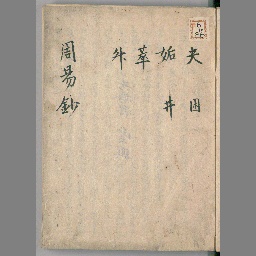 夬 困
姤 井
萃
升
周易鈔